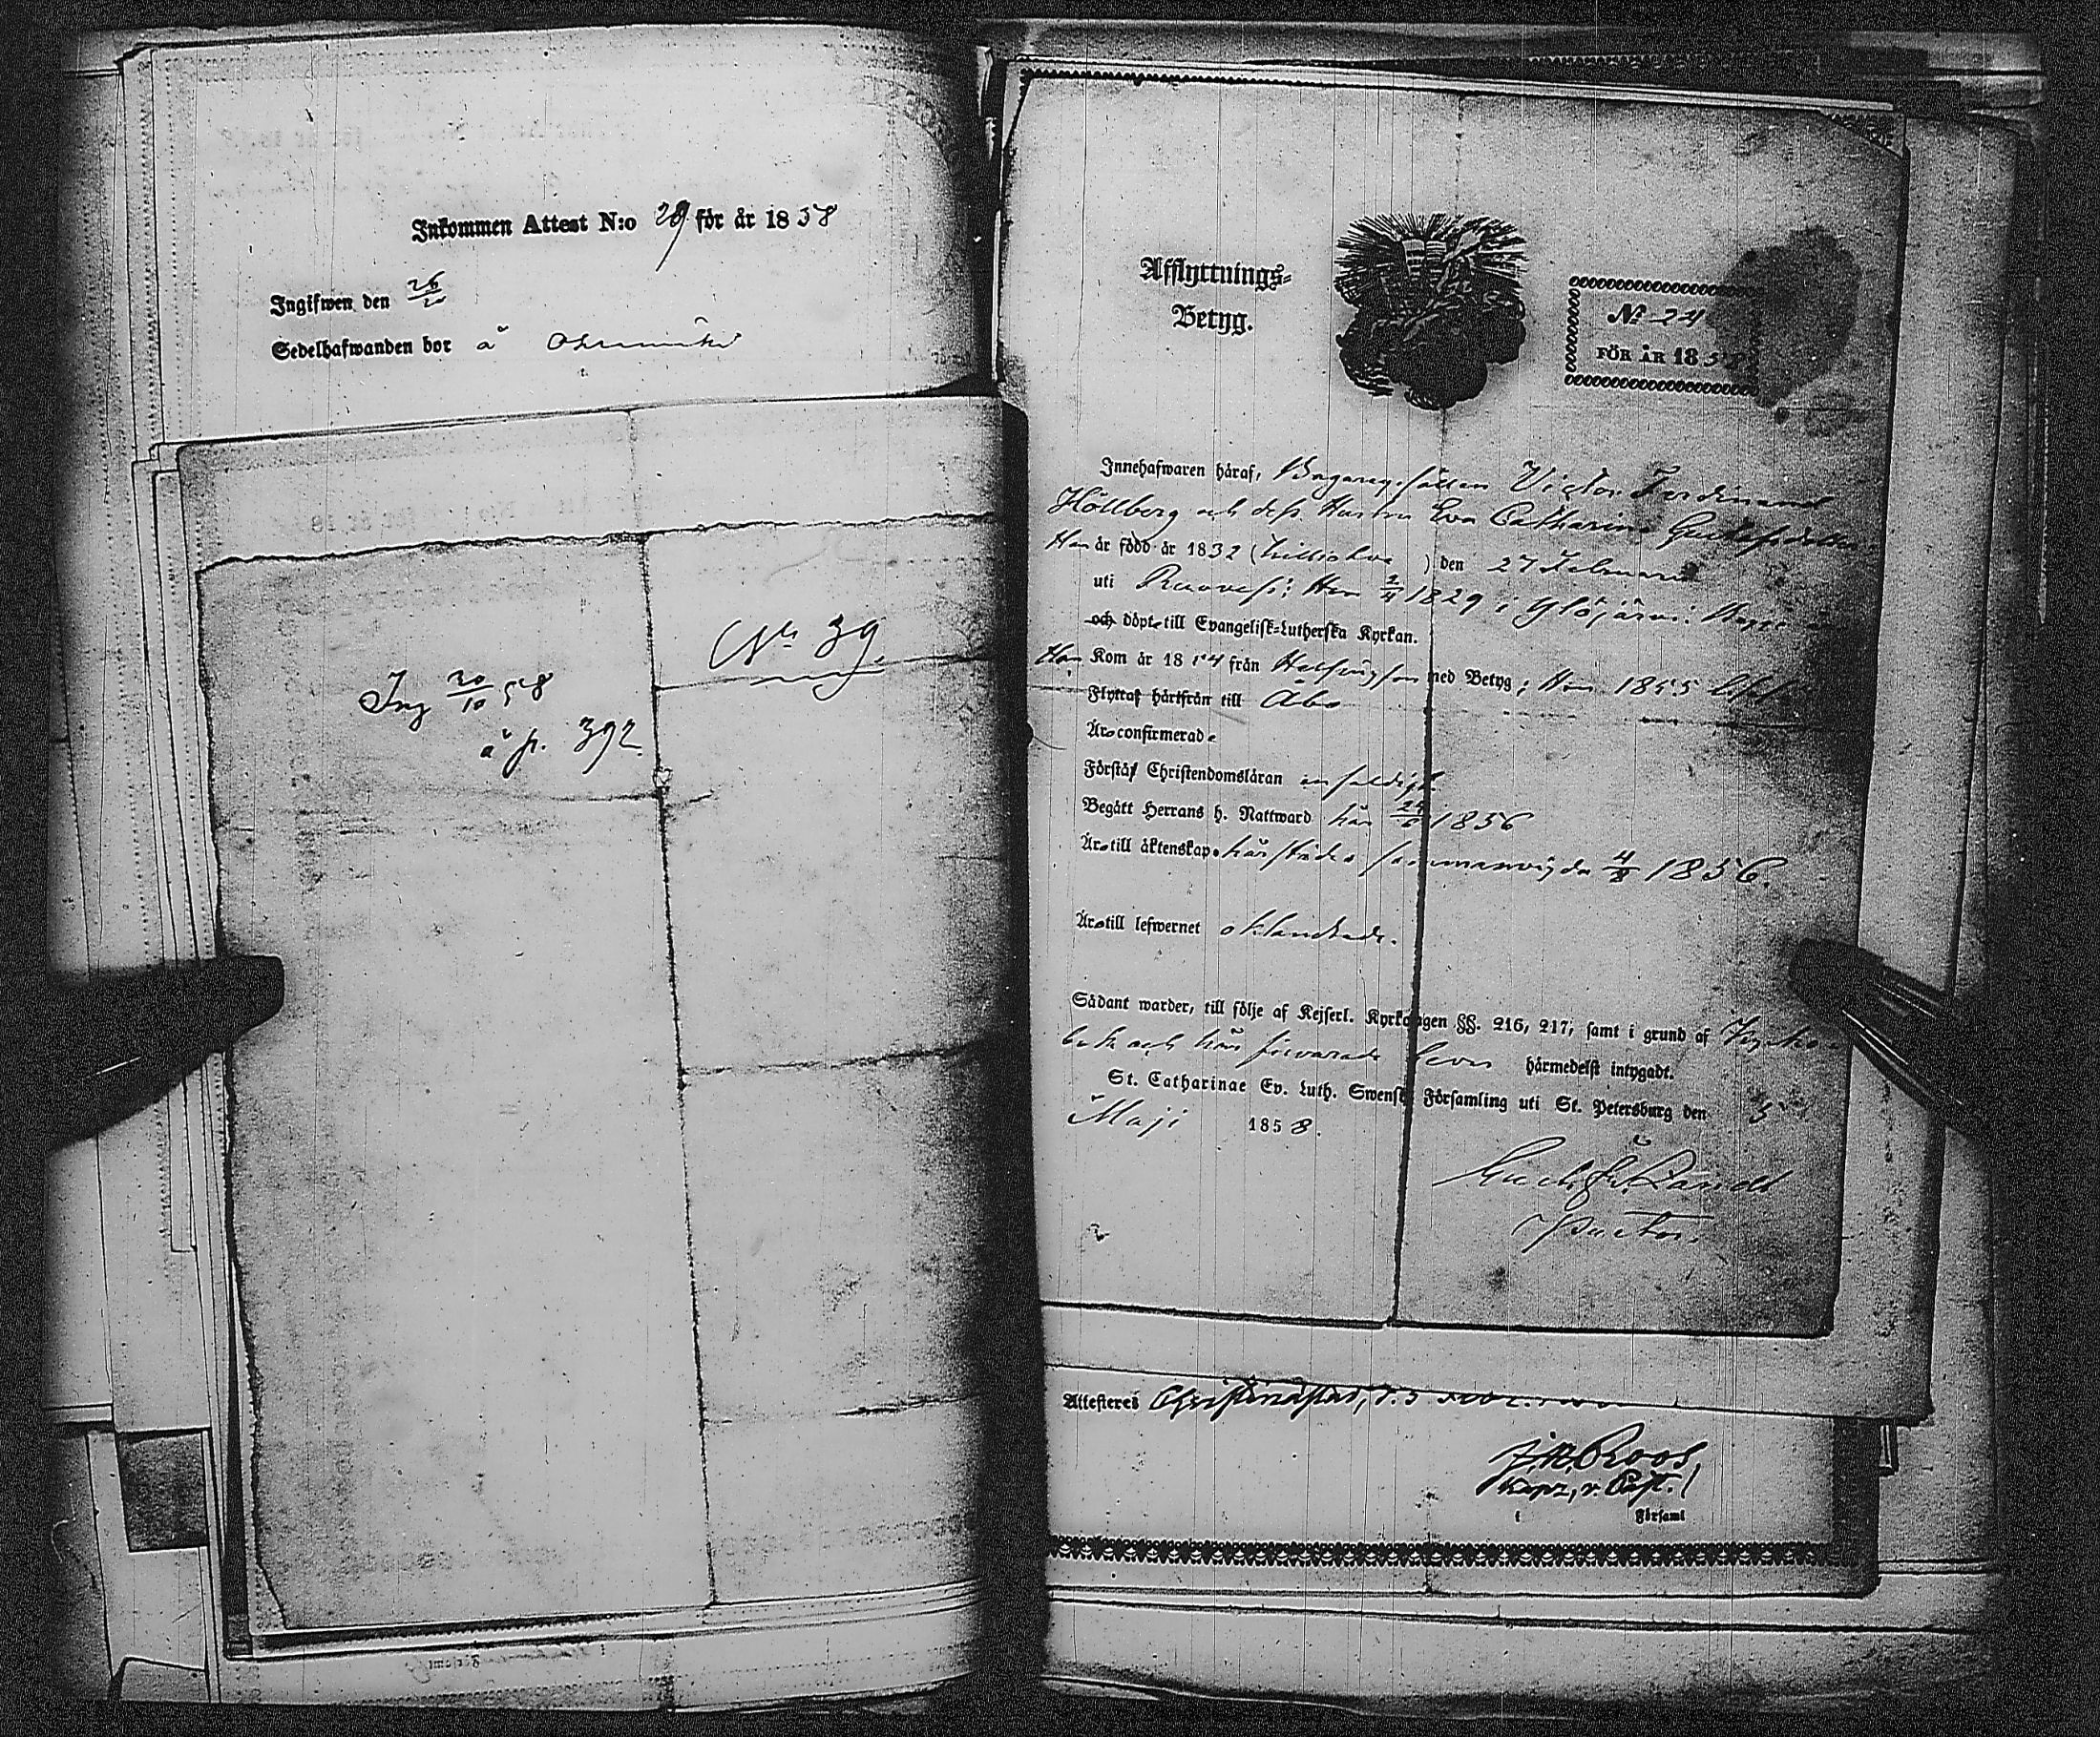 Inkommen Attest N:o 29 för år 1858
Ingifwen den 26/10
Sedelhafwanden bor å
Ing 20/10 58
å p. 392.
No 39.
Afflyttnings-
Betyg.
No 24
FÖR ÅR 185
Innehafwaren håraf, Bagaregesällen Victor Ferdinand
Höllberg och dess Hustru Eva Catharina Gustafsdotter
Han är född år 1832 ( ) den 27 Februari
uti Ruovesi; Hon 2/4 1829 i Ylöjärvi:
och döpte till Evangelisk-Lutherska Kyrkan.
Han Kom år 1854 från Helsingfors med Betyg; Hon 1855
Flyttar härifrån till Åbo
Äro confirmerade
Förstår Christendomsläran enfaldigt
Begått Herrans h. Nattward här 24/6 1856
Äro till äktenskap härstädes sammanvigda 4/8 1856.
Äro till lefwernet oklandrade.
Sådant warder, till följe af Kejserl. Kyrkolagen §§. 216, 217, samt i grund af Kyrko-
bok och här förvarade bevis härmedelst intygadt.
St. Catharinae Ev. Luth. Swenska Församling uti St. Petersburg den 5
Maji 1858.
Pastor.
Attesteras Christinestad, d. 5
J. N. Roos
Kapn, v. Past.
i Församl